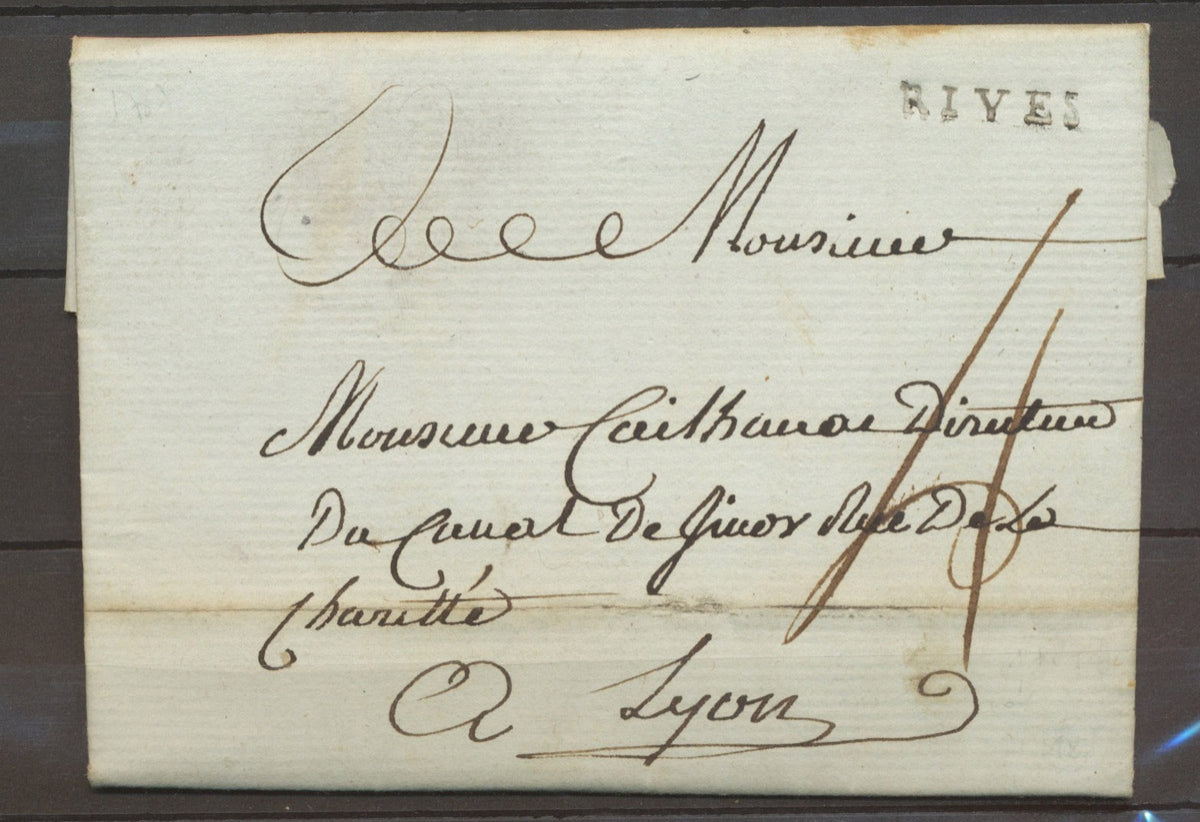 RIVES
Monsieur
Monsieur Directeur
Du Canal De Givor Rue De La
Charitté
A Lyon